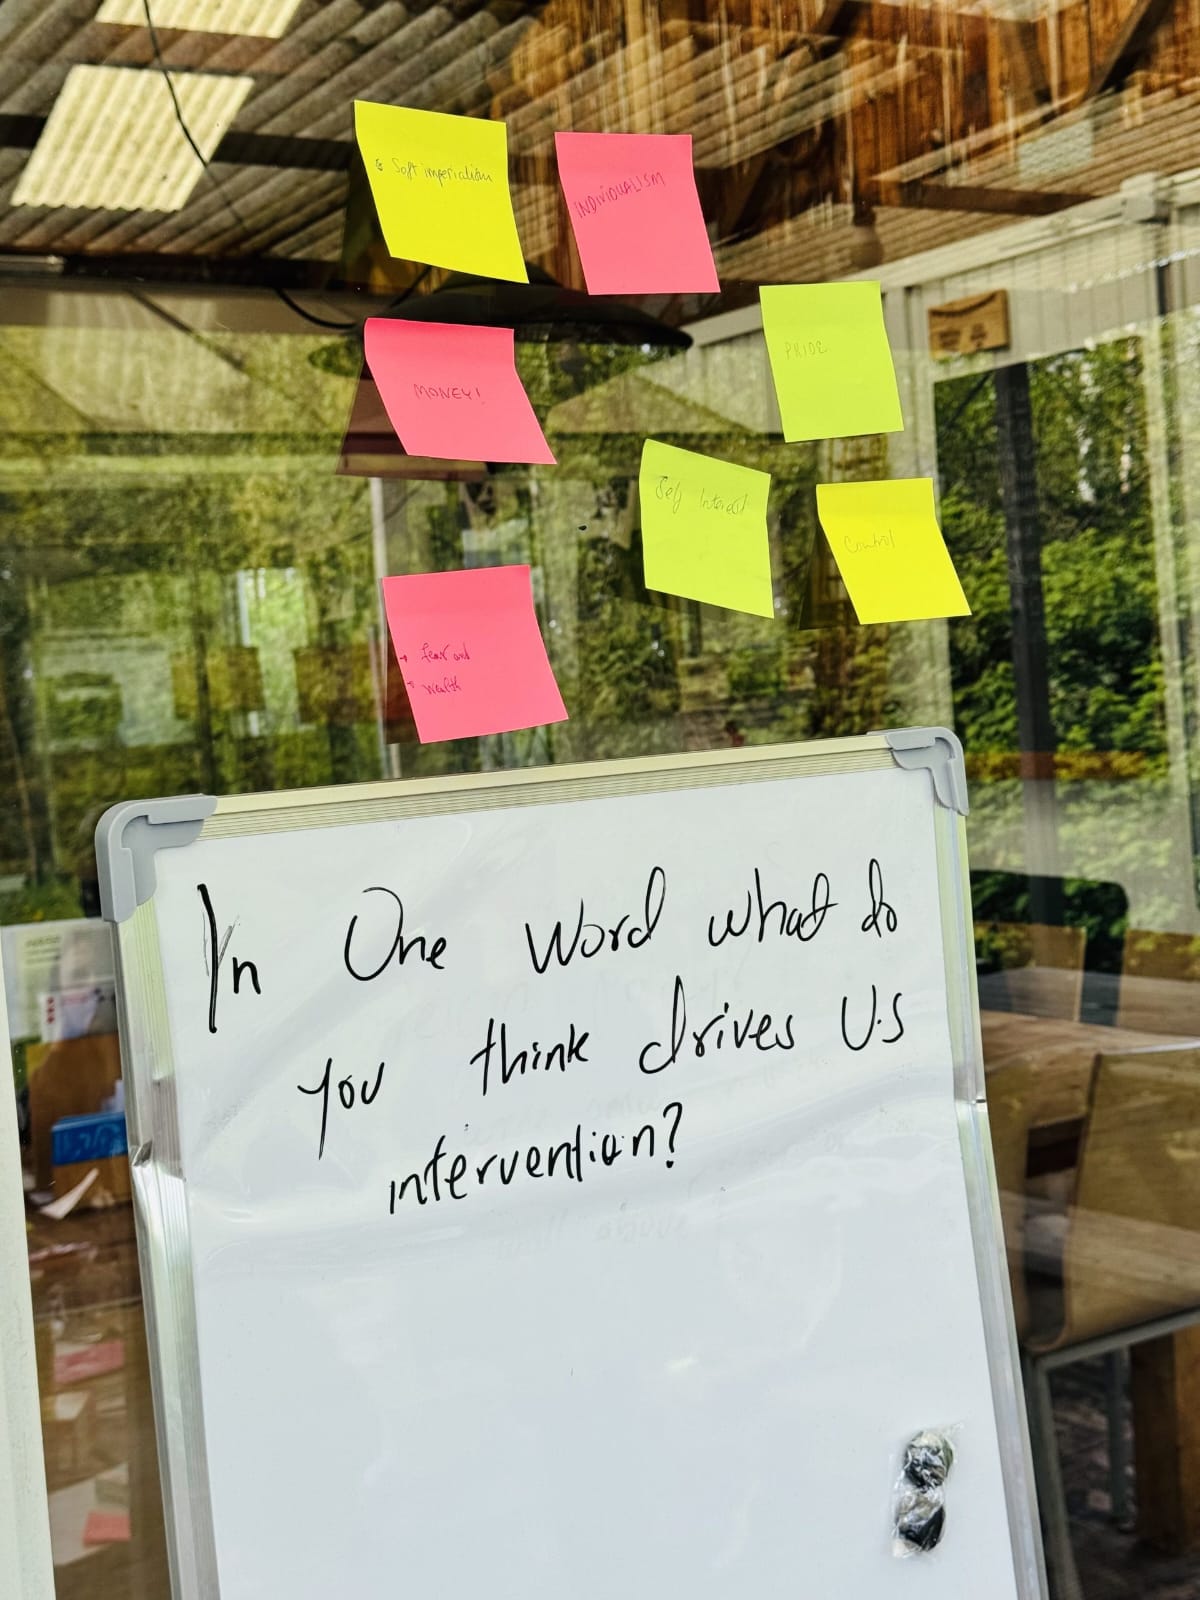 Soft imperialism
INDIVIDUALISM
MONEY!
PRIDE
Self Interest
Control
→ fear and
→ wealth
In One Word what do
you think drives U.S
intervention?